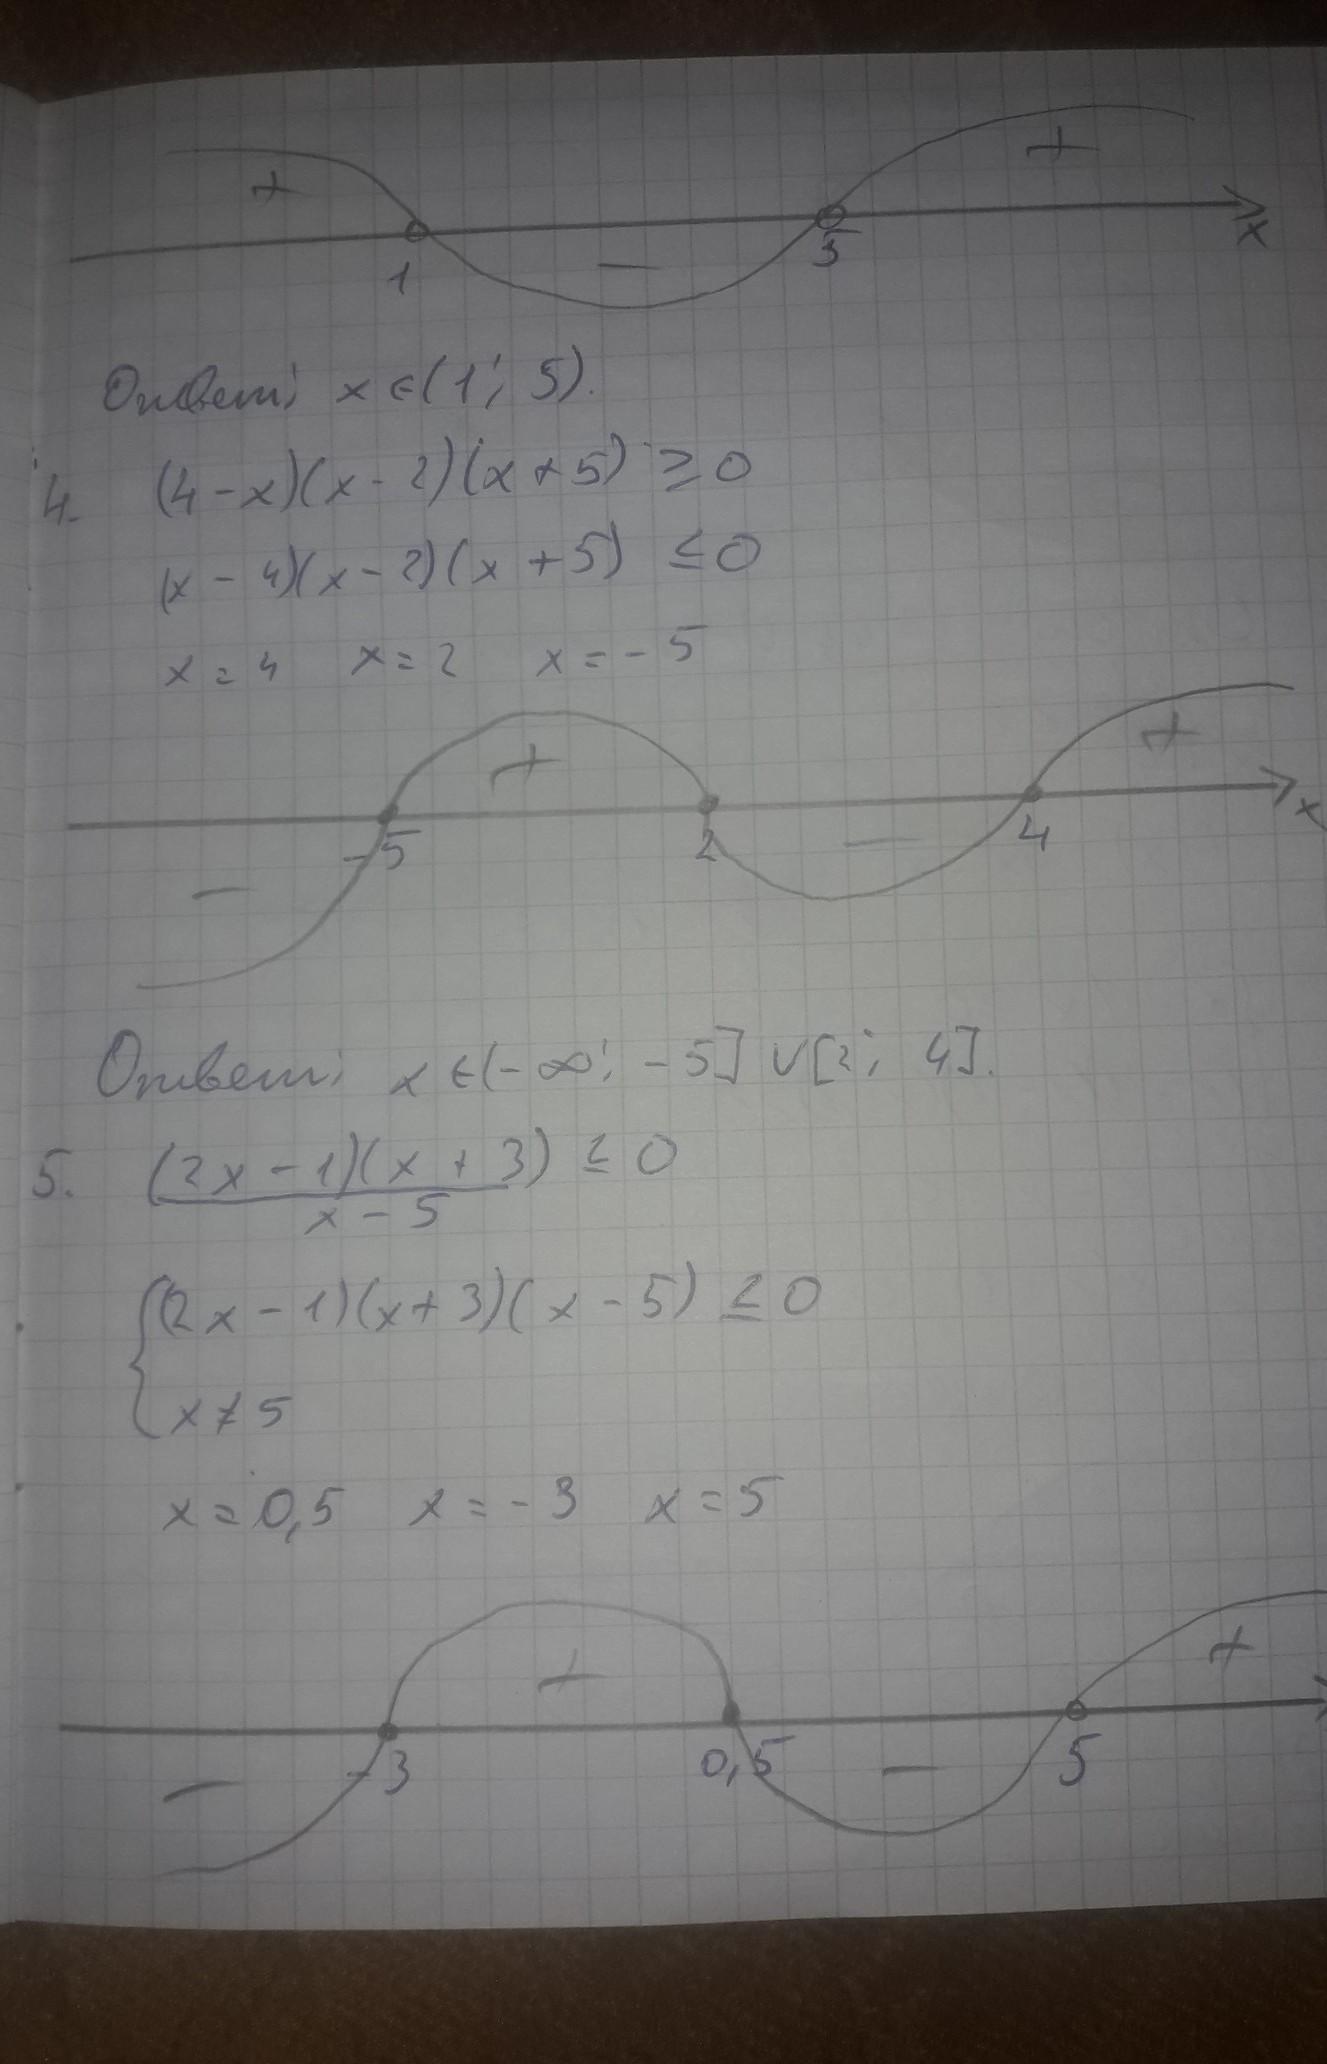 + - +
1 5 x
Ответ: x ∈ (1; 5).
4. (4-x)(x-2)(x+5) ≥ 0
(x-4)(x-2)(x+5) ≤ 0
x = 4 x = 2 x = -5
- + - +
-5 2 4 x
Ответ: x ∈ (-∞; -5] ∪ [2; 4].
5. (2x-1)(x+3) ≤ 0
x-5
{(2x-1)(x+3)(x-5) ≤ 0
x ≠ 5
x = 0,5 x = -3 x = 5
- + - +
-3 0,5 5